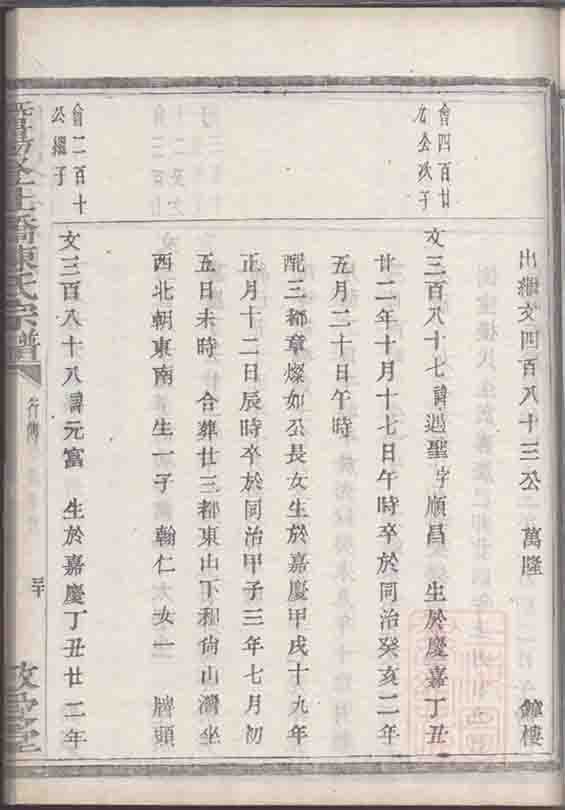 出繼文四百八十三公 萬隆 鐘樓
會四百廿
九公次子
文三百八十七諱遇聖字順昌 生於慶嘉丁丑
廿二年十月十七日午時卒於同治癸亥二年
五月二十日午時
配三都章燦如公長女生於嘉慶甲戌十九年
正月十二日辰時卒於同治甲子三年七月初
五日未時 合葬廿三都東山下和尙山灣坐
西北朝東南 生一子 翰仁 女一 臍頭
會二百十
公繼子
文三百八十八諱元富 生於嘉慶丁丑廿二年
橋陳氏宗譜
行傳